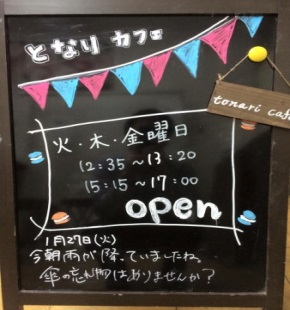 となり カフェ
tonari cafe
火・木・金曜日
12:35~13:20
15:15~17:00
open
1月27日(火)
今朝雨が降っていましたね。
傘の忘れ物はありませんか?